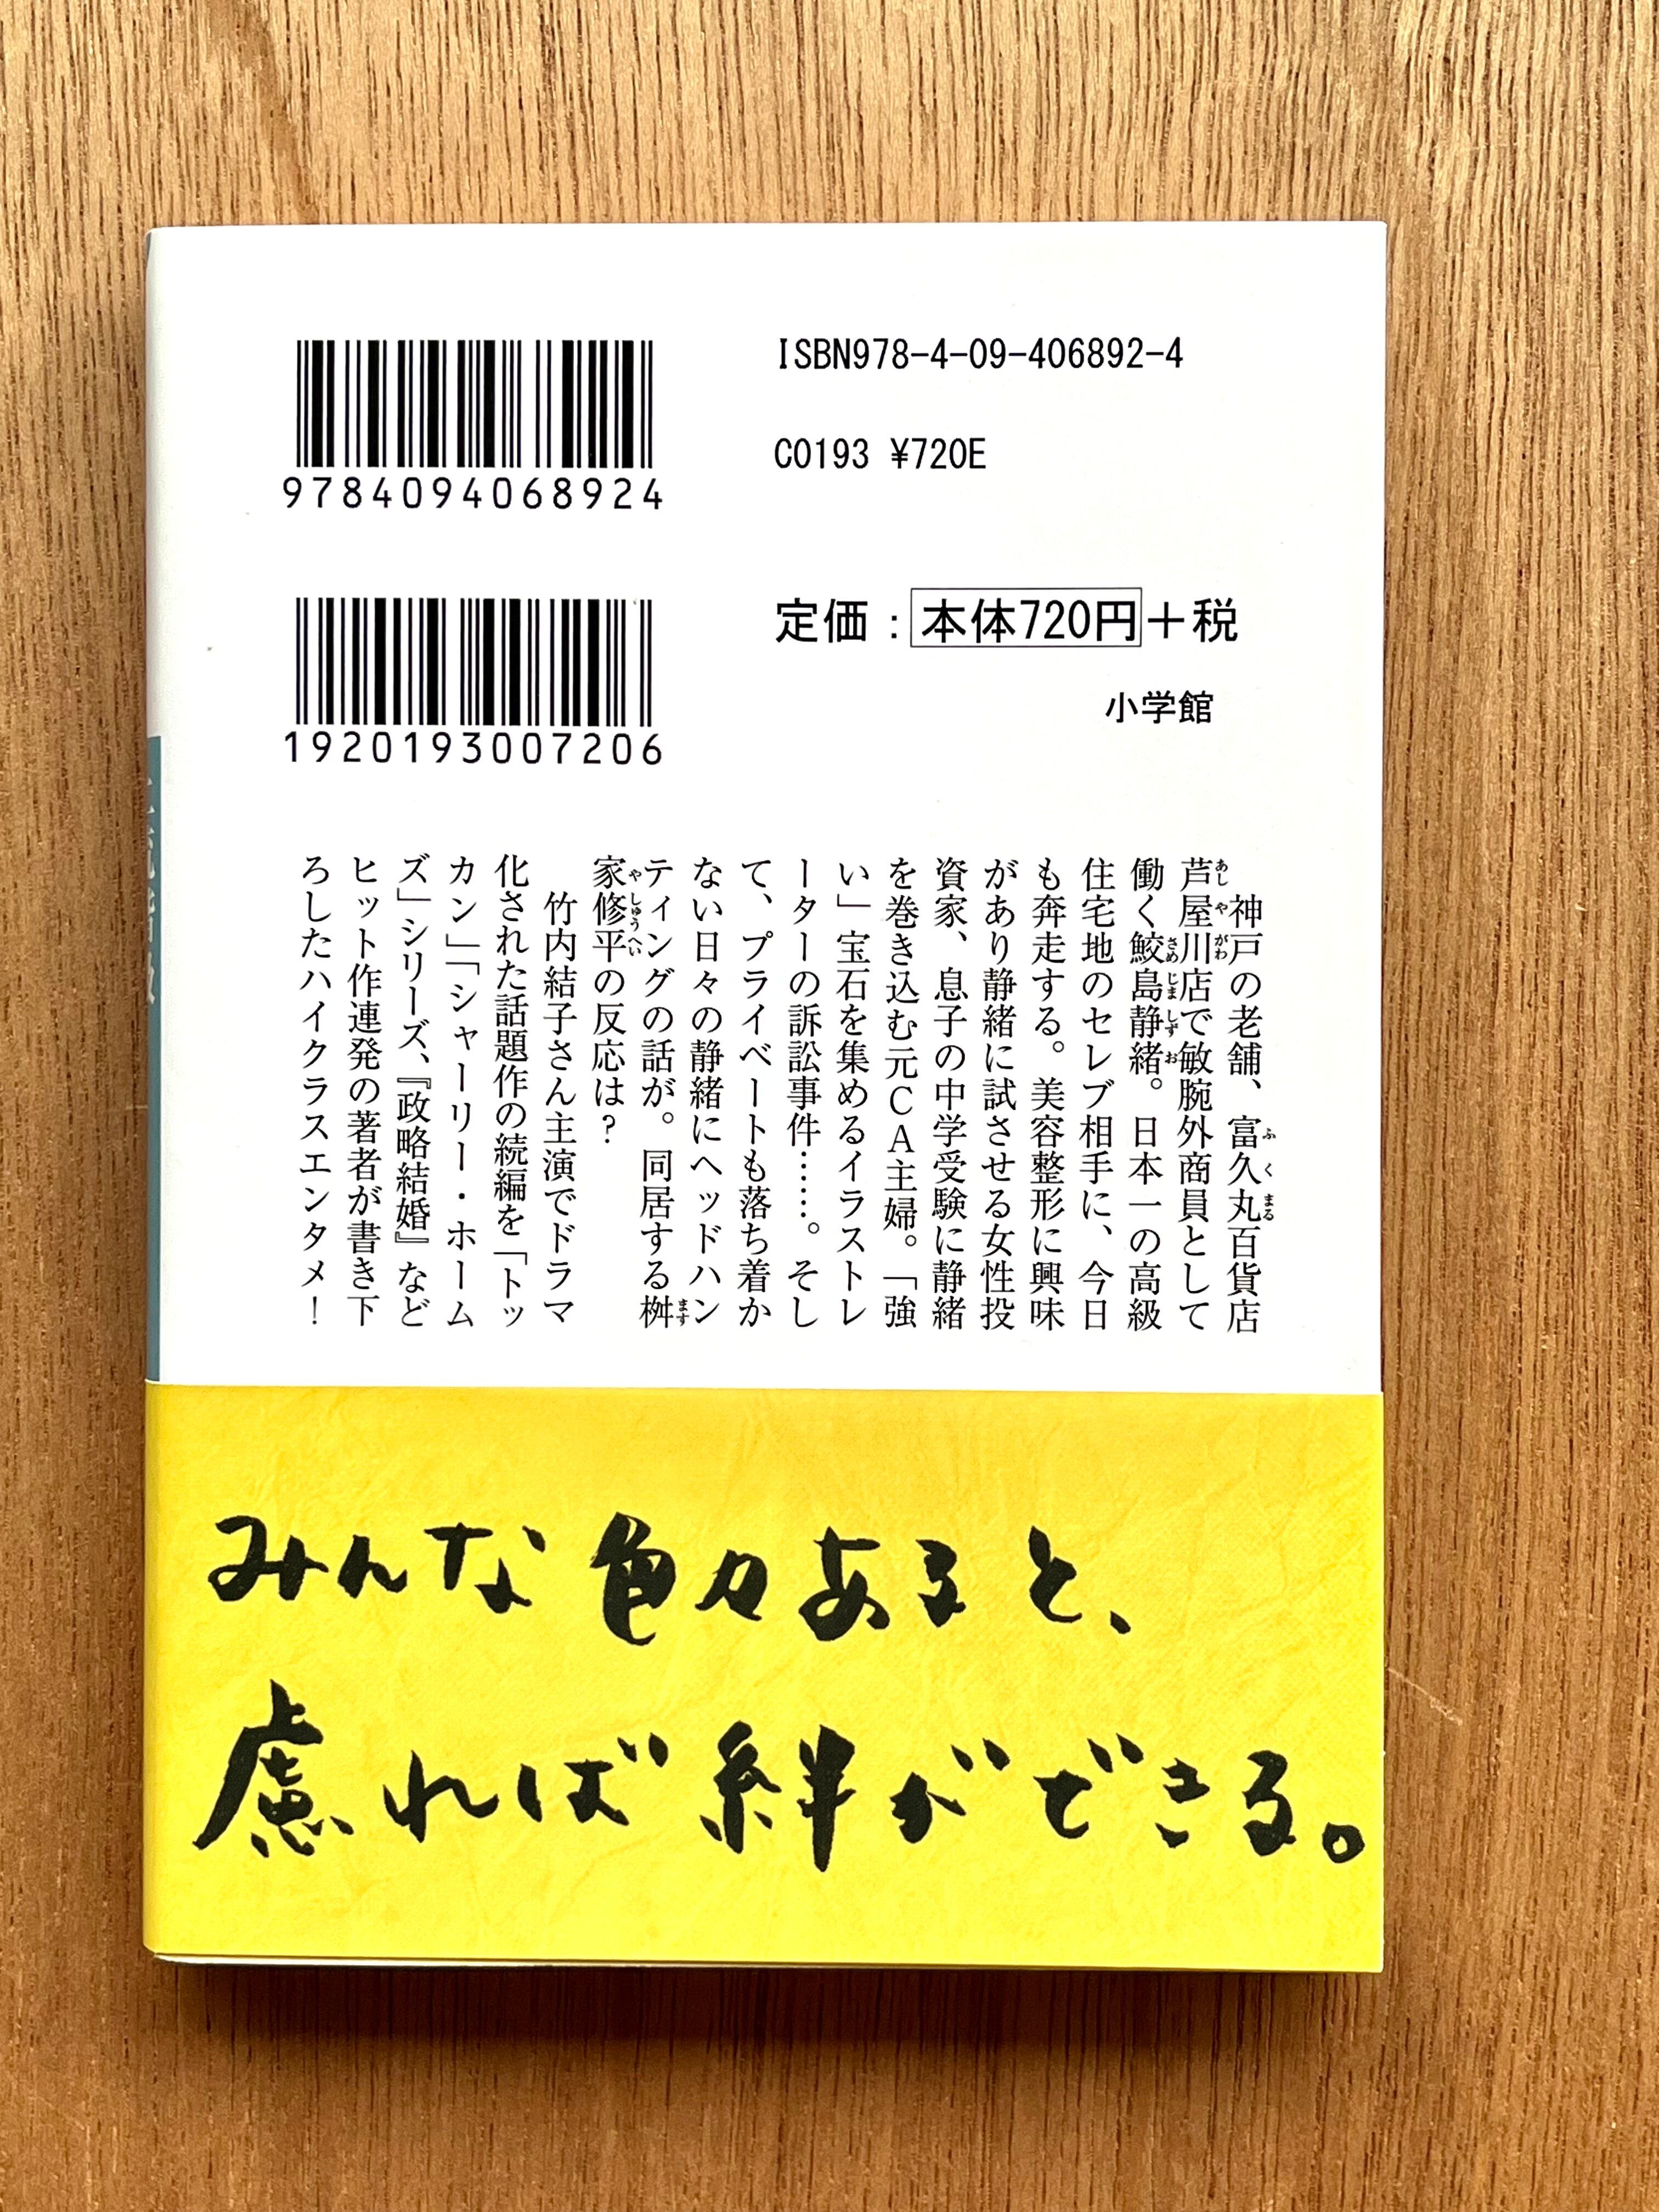 ISBN978-4-09-406892-4
C0193 ¥720E
9784094068924
定価：本体720円＋税
小学館
1920193007206
神戸の老舗、富久丸百貨店
芦屋川店で敏腕外商員として
働く鮫島静緒。日本一の高級
住宅地のセレブ相手に、今日
も奔走する。美容整形に興味
があり静緒に試させる女性投
資家、息子の中学受験に静緒
を巻き込む元ＣＡ主婦。「強
い」宝石を集めるイラストレ
ーターの訴訟事件……。そし
て、プライベートも落ち着か
ない日々の静緒にヘッドハン
ティングの話が。同居する桝
家修平の反応は？
竹内結子さん主演でドラマ
化された話題作の続編を「トッ
カン」「シャーリー・ホーム
ズ」シリーズ、『政略結婚』など
ヒット作連発の著者が書き下
ろしたハイクラスエンタメ！
みんな色々あると、
慮れば絆ができる。